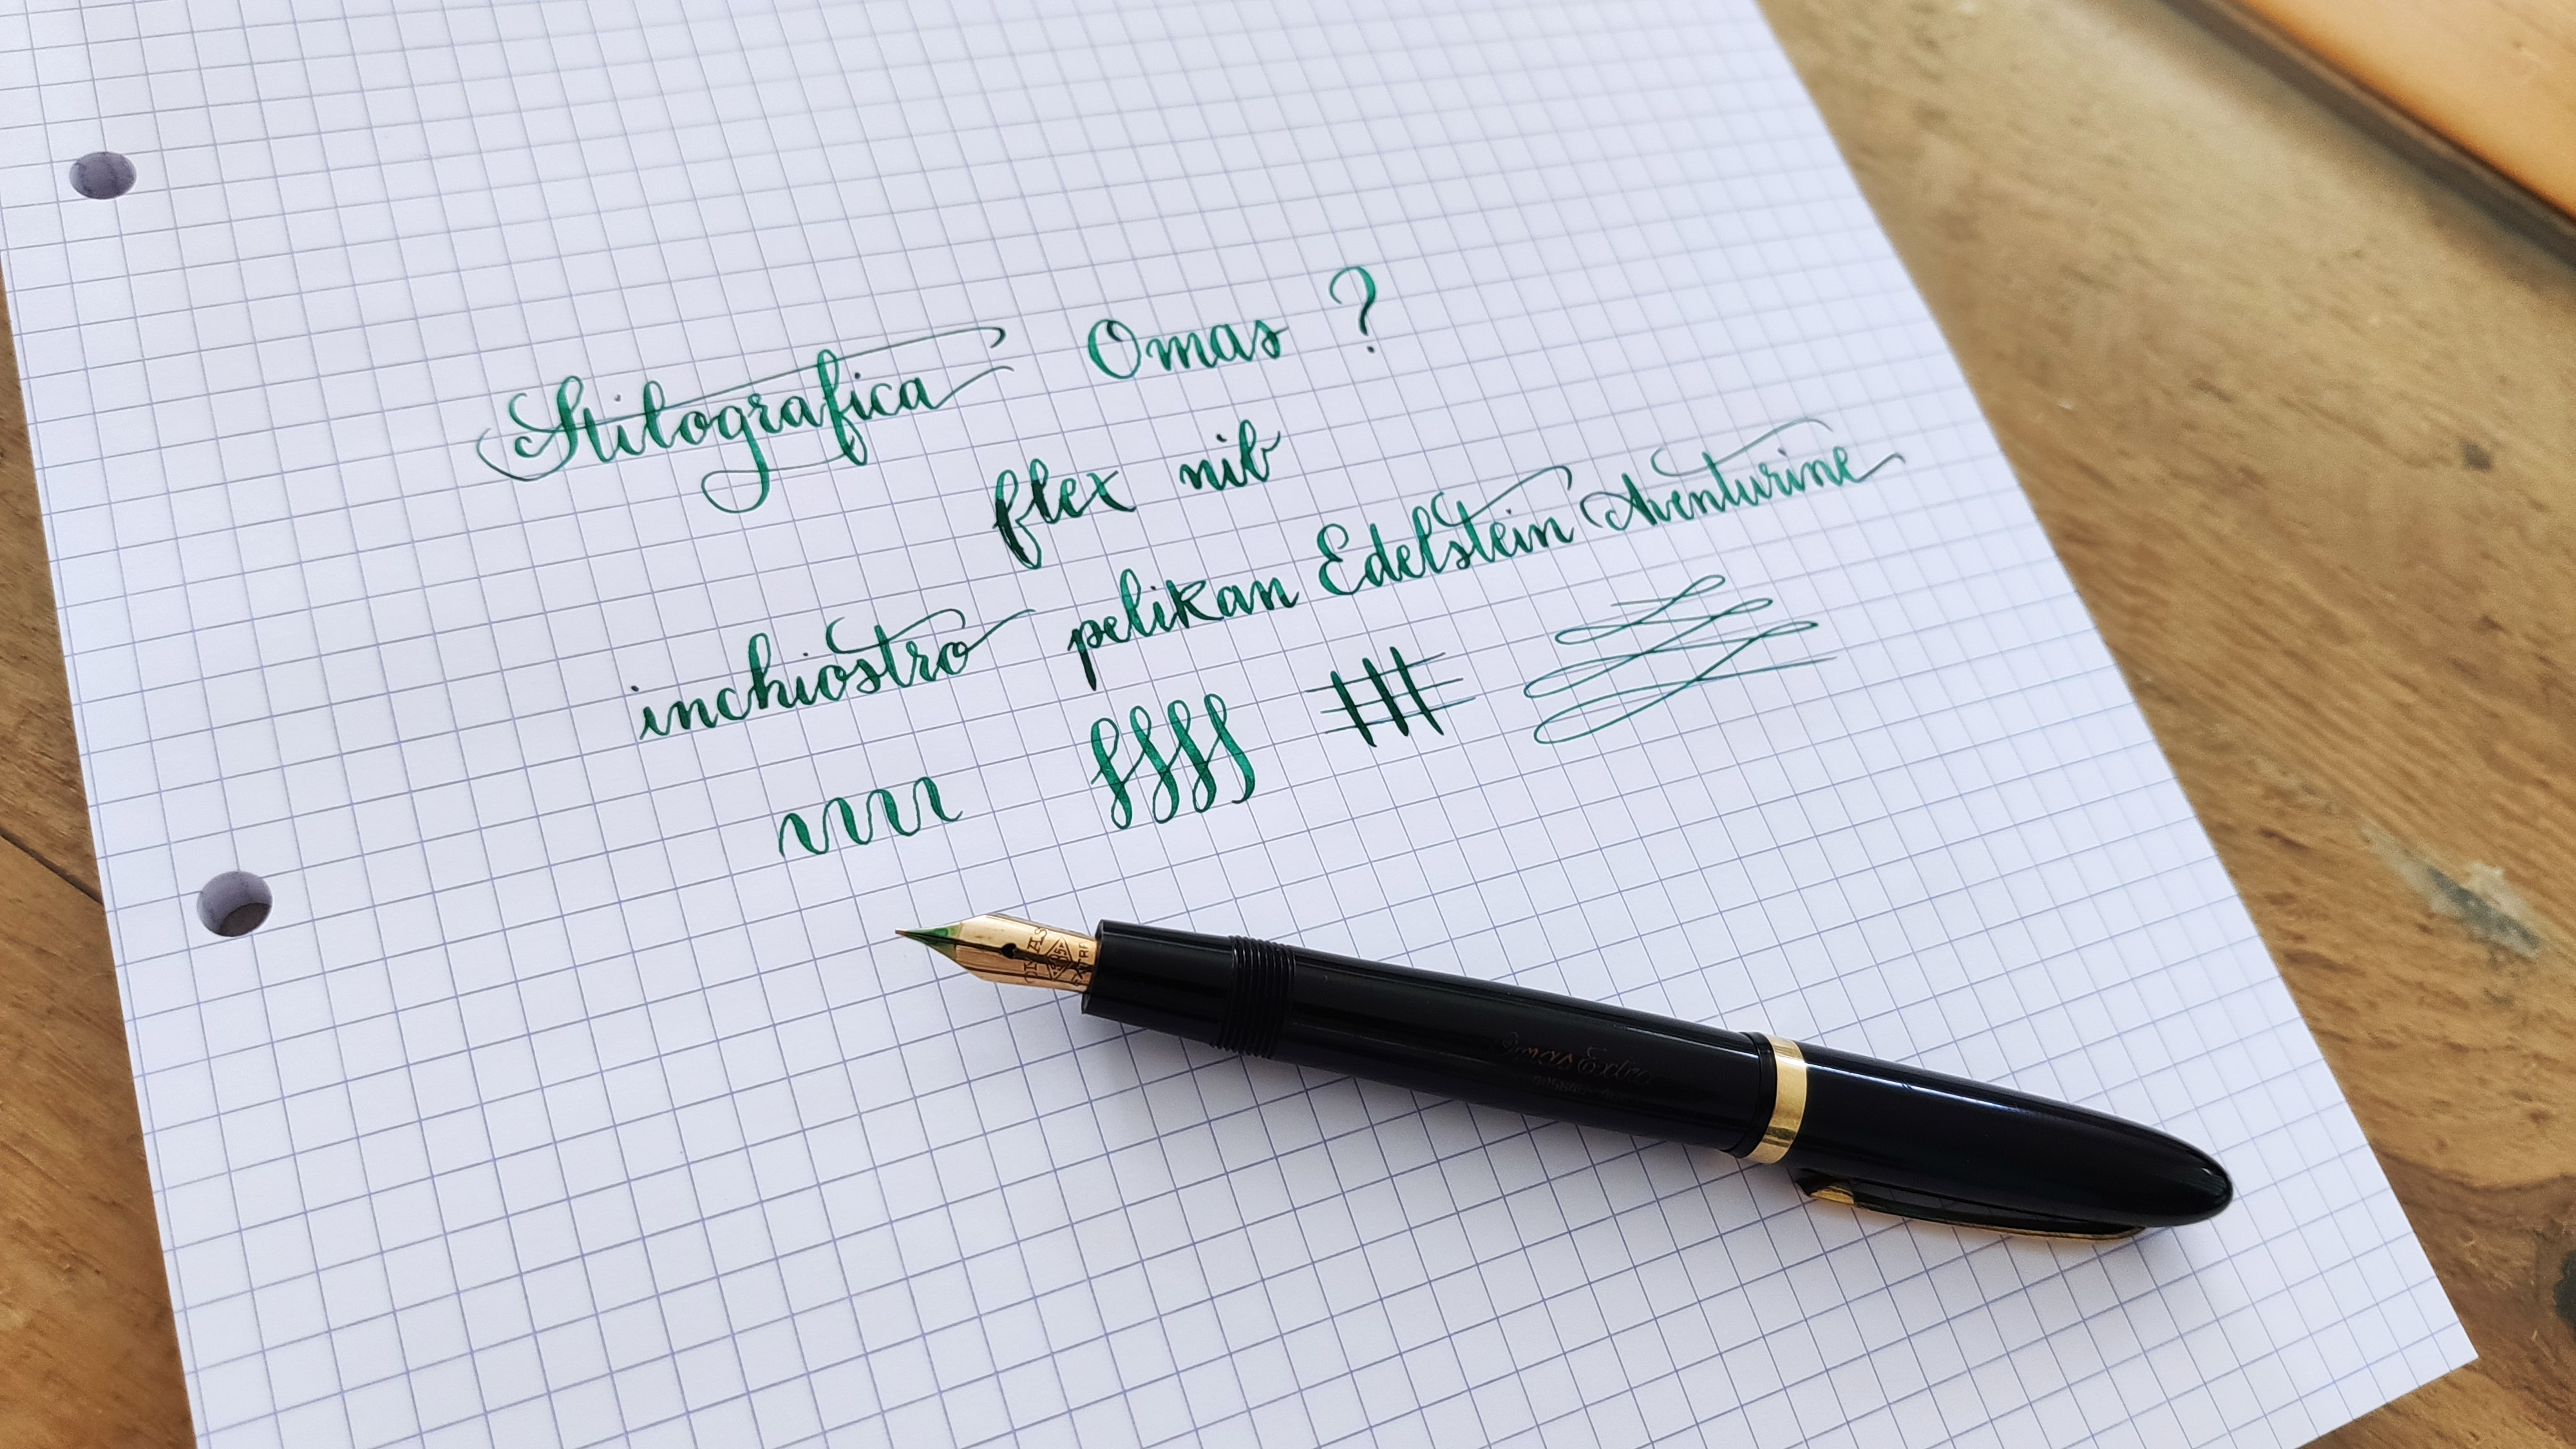 Stilografica Omas ?
flex nib
inchiostro pelikan Edelstein Aventurine
OMAS
585
EXTRA
Omas Extra